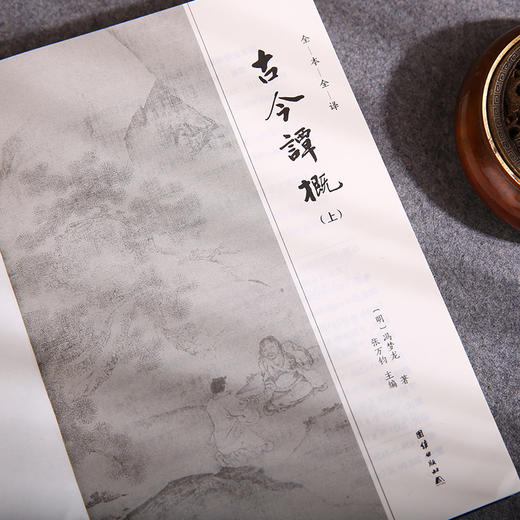 全—本—全—译
古今譚概
(上)
〔明〕冯梦龙 著
张万钧 主编
团结出版社